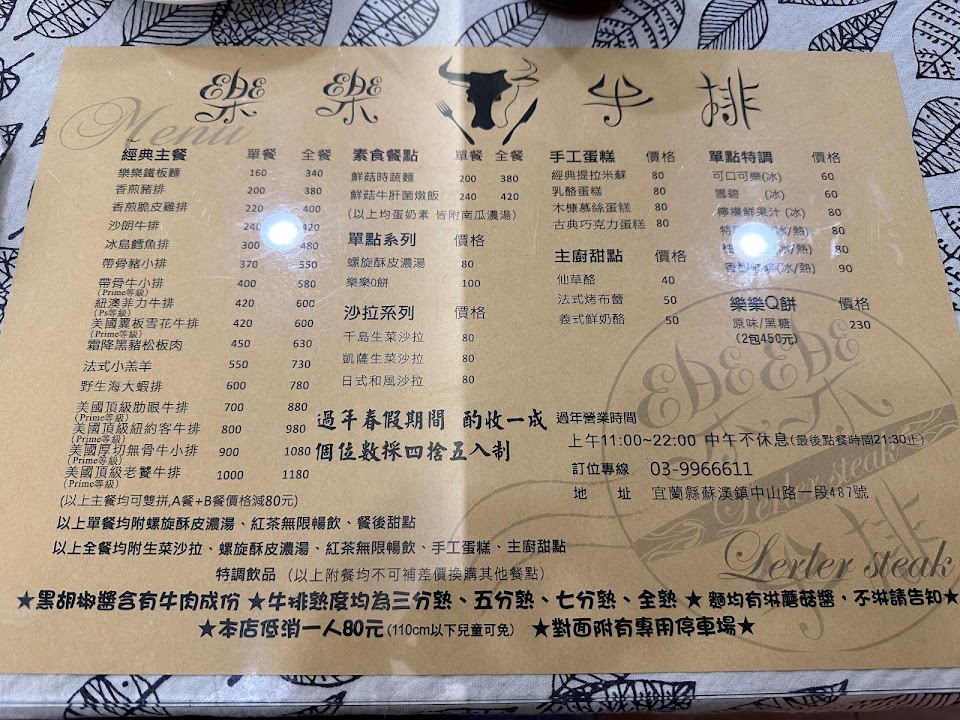 樂樂牛排
Menu
經典主餐 單餐 全餐
樂樂鐵板麵 160 340
香煎豬排 200 380
香煎脆皮雞排 220 400
沙朗牛排 240 420
冰島鱈魚排 300 480
帶骨豬小排 370 550
帶骨牛小排 400 580
(Prime等級)
紐澳菲力牛排 420 600
(Ps等級)
美國翼板雪花牛排 420 600
(Prime等級)
霜降黑豬松板肉 450 630
法式小羔羊 550 730
野生海大蝦排 600 780
美國頂級肋眼牛排 700 880
(Prime等級)
美國頂級紐約客牛排 800 980
(Prime等級)
美國厚切無骨牛小排 900 1080
(Prime等級)
美國頂級老饕牛排 1000 1180
(Prime等級)
(以上主餐均可雙拼,A餐+B餐價格減80元)
素食餐點 單餐 全餐
鮮菇時蔬麵 200 380
鮮菇牛肝菌燉飯 240 420
(以上均蛋奶素 皆附南瓜濃湯)
單點系列 價格
螺旋酥皮濃湯 80
樂樂Q餅 100
沙拉系列 價格
千島生菜沙拉 80
凱薩生菜沙拉 80
日式和風沙拉 80
手工蛋糕 價格
經典提拉米蘇 80
乳酪蛋糕 80
木糠慕絲蛋糕 80
古典巧克力蛋糕 80
主廚甜點 價格
仙草酪 40
法式烤布蕾 50
義式鮮奶酪 50
單點特調 價格
可口可樂(冰) 60
雪碧 (冰) 60
檸檬鮮果汁(冰) 80
特 (冰/熱) 80
桂 (冰/熱) 80
香 (冰/熱) 90
樂樂Q餅 價格
原味/黑糖 230
(2包450元)
過年春假期間 酌收一成
個位數採四捨五入制
過年營業時間
上午11:00~22:00 中午不休息(最後點餐時間21:30止)
訂位專線 03-9966611
地 址 宜蘭縣蘇澳鎮中山路一段487號
以上單餐均附螺旋酥皮濃湯、紅茶無限暢飲、餐後甜點
以上全餐均附生菜沙拉、螺旋酥皮濃湯、紅茶無限暢飲、手工蛋糕、主廚甜點
特調飲品 (以上附餐均不可補差價換購其他餐點)
樂樂
Lerler steak
排
Lerler steak
★黑胡椒醬含有牛肉成份 ★牛排熟度均為三分熟、五分熟、七分熟、全熟 ★ 麵均有淋蘑菇醬，不淋請告知★
★本店低消一人80元(110cm以下兒童可免) ★對面附有專用停車場★